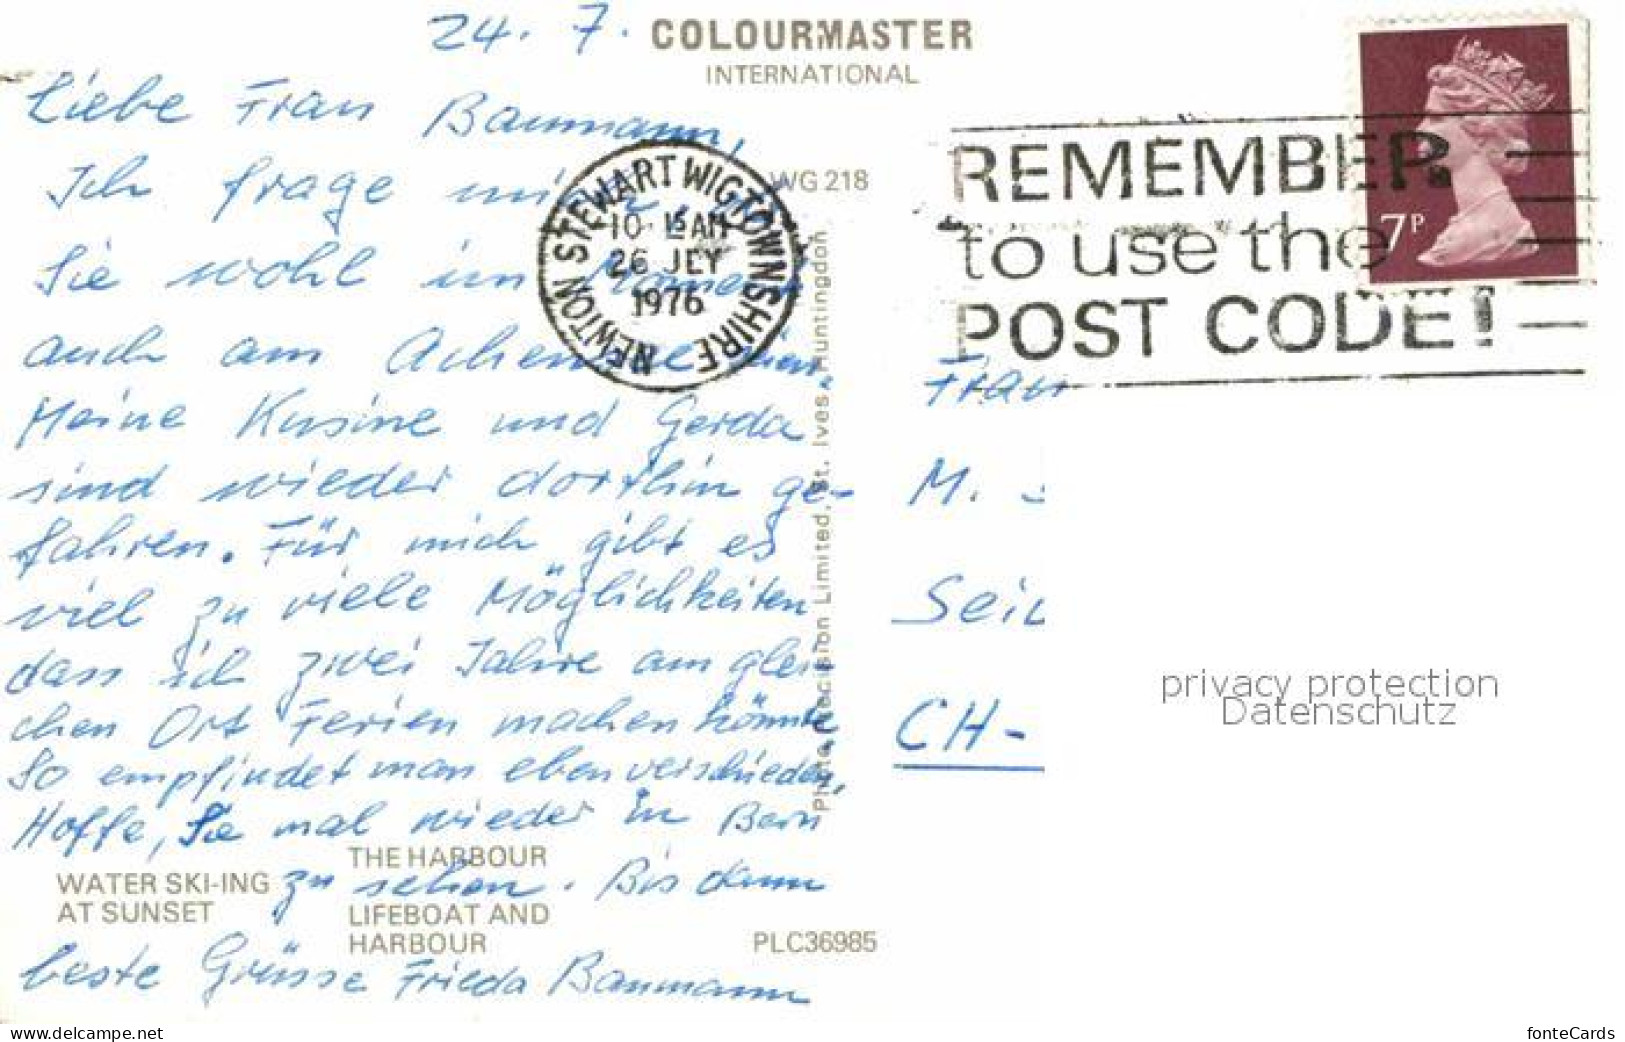 24. 7.
COLOURMASTER
INTERNATIONAL
Liebe Frau Baumann,
Ich frage mich, ob
Sie wohl im Moment
auch am Achensee sind.
Meine Kusine und Gerda
sind wieder dorthin ge-
fahren. Für mich gibt es
viel zu viele Möglichkeiten
dass ich zwei Jahre am glei-
chen Ort Ferien machen könnte.
So empfindet man eben verschieden,
Hoffe, Sie mal wieder in Bern
zu sehen. Bis dann
beste Grüsse Frieda Baumann
WATER SKI-ING
AT SUNSET
THE HARBOUR
LIFEBOAT AND
HARBOUR
PLC36985
WG 218
Photo Precision Limited, St. Ives, Huntingdon
NEWTON STEWART WIGTOWNSHIRE
10-15 AM
26 JLY
1976
REMEMBER
to use the
POST CODE!
7P
Frau
M.
CH-
privacy protection
Datenschutz
www.delcampe.net
fonteCards